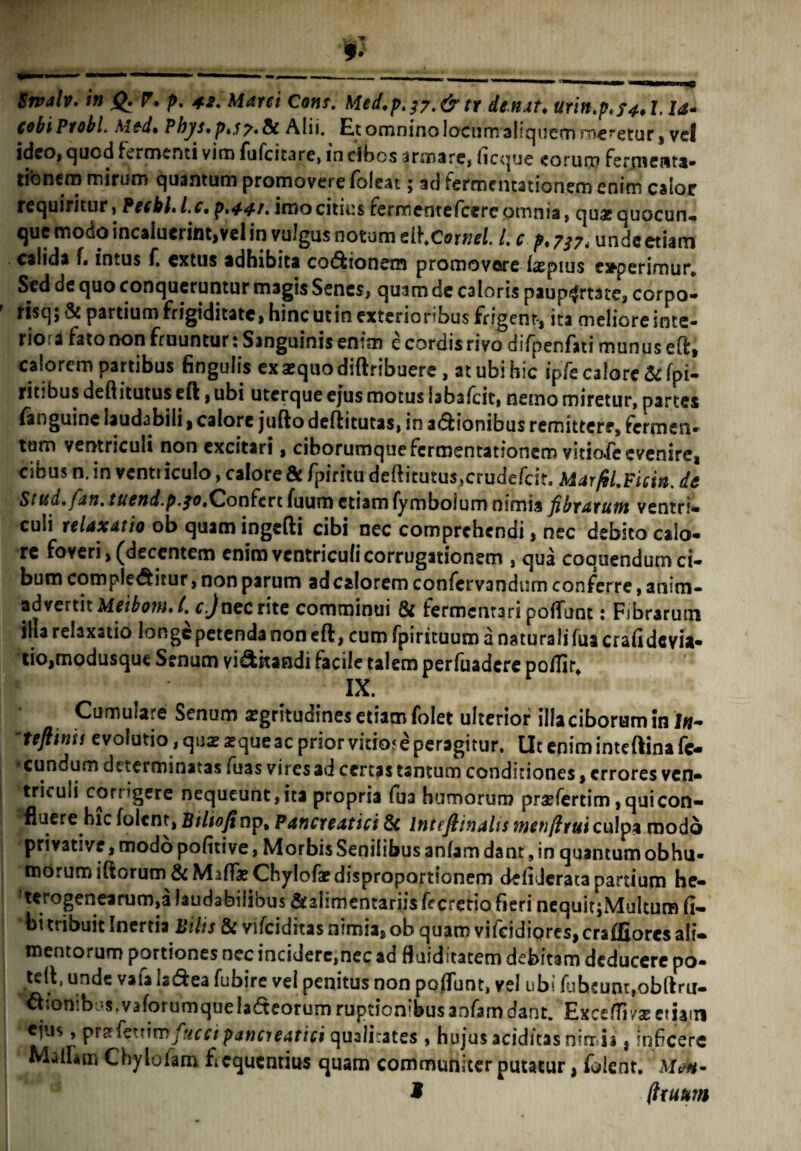 9.
Swalv. in Q. V. p. 42. Marci Cons. Med. p. 37. & tr de.nat. urin.p.54. I. Ia-
cobi Probl. Med. Phys. p.57. & Alii. Et omnino locum aliquem meretur, vel
ideo, quod fermenti vim suscitare, in cibos armare, sicque eorum fermenta-
tionem mirum quantum promovere soleat; ad fermentationem enim calor
requiritur, Pechl. l.c. p.441. imo citius fermentescere omnia, quæ quocun-
que modo incaluerint, vel in vulgus notum est. Cornel. l. c p. 737. unde etiam
calida s. intus s. extus adhibita coctionem promovere sæpius experimur.
Sed de quo conqueruntur magis Senes, quam de caloris paupertate, corpo-
risq; & partium frigiditate, hinc ut in exterioribus frigent, ita meliore inte-
riora fato non fruuntur: Sanguinis enim è cordis rivo dispensati munus est,
calorem partibus singulis ex æquo distribuere, at ubi hic ipse calore & spi-
ritibus destitutus est, ubi uterque ejus motus labascit, nemo miretur, partes
sanguine laudabili, calore justo destitutas, in actionibus remittere, fermen-
tum ventriculi non excitari, ciborumque fermentationem vitiose evenire,
cibus n. in ventriculo, calore & spiritu destitutus, crudescit. Marsil. Ficin. de
Stud. san. tuend.p.30. Confert suum etiam symbolum nimia fibrarum ventri-
culi relaxatio ob quam ingesti cibi nec comprehendi, nec debito calo-
re foveri, (decentem enim ventriculi corrugationem, quâ coquendum ci-
bum complectitur, non parum ad calorem conservandum conferre, anim-
advertit Meibom. l. c.) nec rite comminui & fermentari possunt: Fibrarum
illa relaxatio longè petenda non est, cum spirituum à naturali sua crasi devia-
tio, modusque Senum victitandi facile talem persuadere possit.
IX.
Cumulare Senum ægritudines etiam solet ulterior illa ciborum in In-
testinis evolutio, quæ æque ac prior vitiosè peragitur. Ut enim intestina se-
cundum determinatas suas vires ad certas tantum conditiones, errores ven-
triculi corrigere nequeunt, ita propria sua humorum præsertim, qui con-
fluere hîc solent, Biliosi np. Pancreatici & Intestinalis menstrui culpa modò
privative, modò positive, Morbis Senilibus ansam dant, in quantum ob hu-
morum istorum & Massæ Chylosæ disproportionem desiderata partium he-
terogenearum, à laudabilibus & alimentariis secretio fieri nequit; Multum si-
bi tribuit Inertia Bilis & visciditas nimia, ob quam viscidiores, crassiores ali-
mentorum portiones nec incidere, nec ad fluiditatem debitam deducere po-
test, unde vasa lactea subire vel penitus non possunt, vel ubi subeunt, obstru-
ctionibus, vasorumque lacteorum ruptionibus ansam dant. Excessivæ etiam
ejus, præsertim succi pancreatici qualitates, hujus aciditas nimia, inficere
Massam Chylosam frequentius quam communiter putatur, solent. Men-
B struum